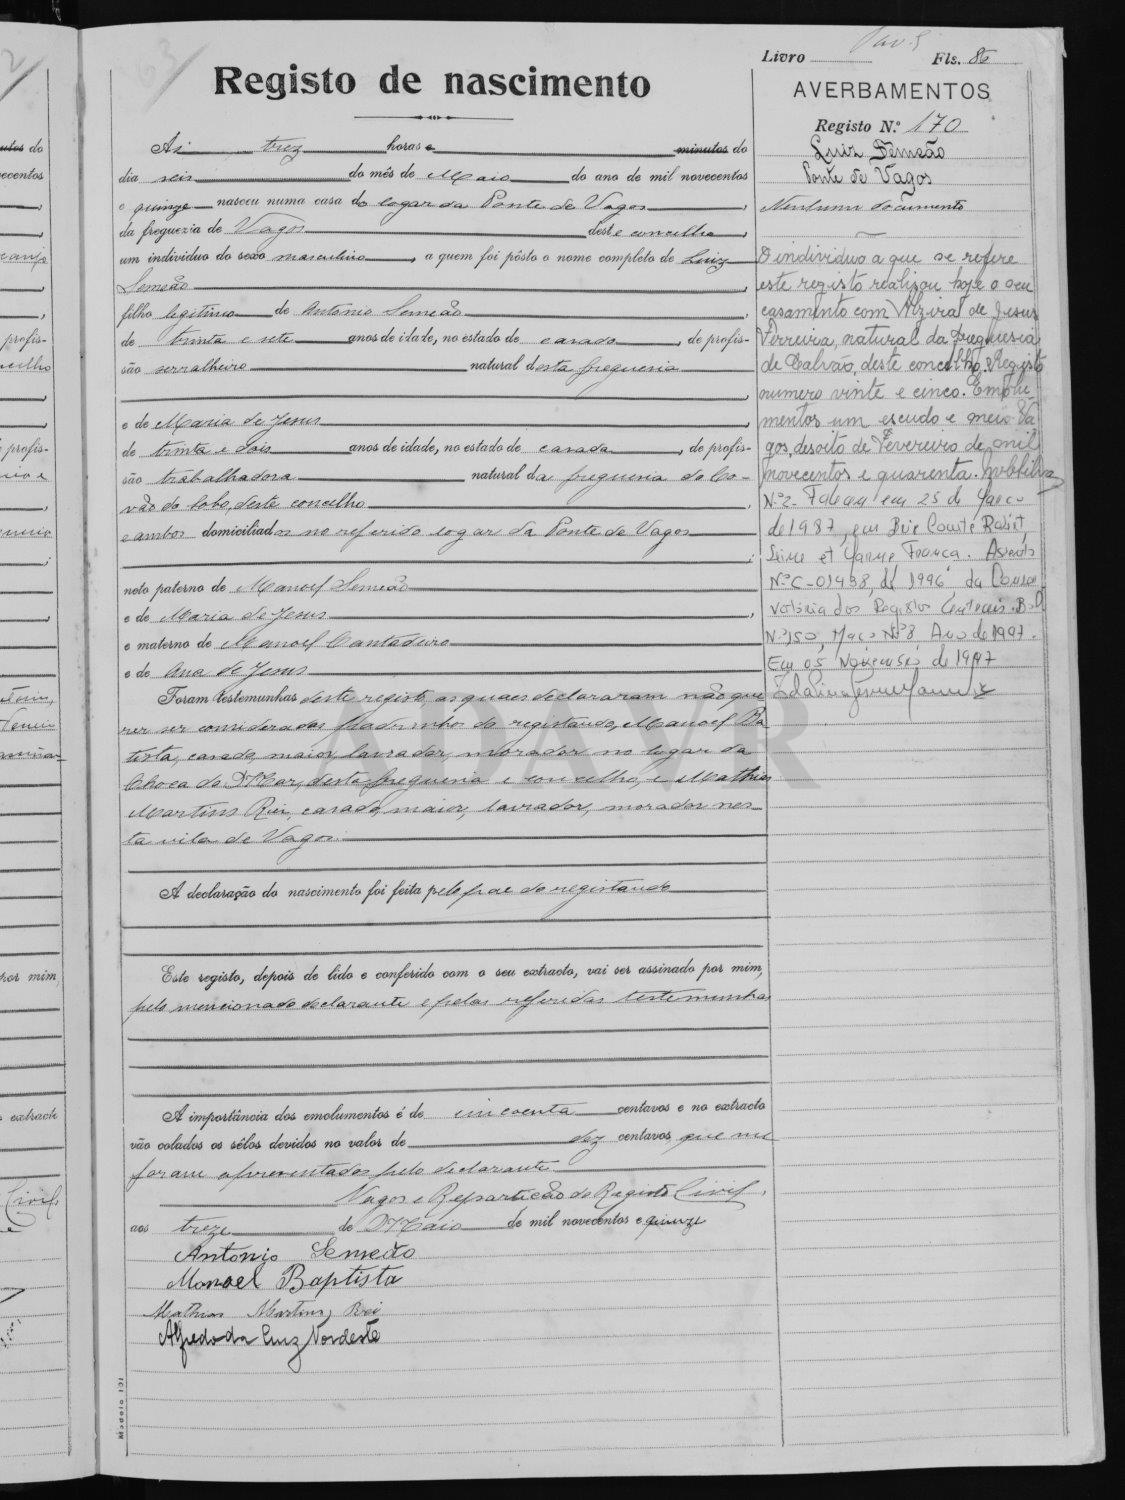 Livro Fls. 86
Registo de nascimento
AVERBAMENTOS
Registo N.º 170
Luiz Semeão
Ponte de Vagos
Nenhum documento
Às trez horas e minutos do
dia seis do mês de Maio do ano de mil novecentos
e quinze nasceu numa casa do logar da Ponte de Vagos,
da freguezia de Vagos deste concelho,
um individuo do sexo masculino, a quem foi pôsto o nome completo de Luiz
Semeão,
filho legitimo de Antonio Semeão,
de trinta e sete anos de idade, no estado de casado, de profis-
são serralheiro natural desta freguesia
,
e de Maria de Jesus,
de trinta e dois anos de idade, no estado de casada, de profis-
são trabalhadora natural da freguesia do Co-
vão do Lobo, deste concelho,
e ambos domiciliados no referido logar da Ponte de Vagos
;
neto paterno de Manoel Semeão
e de Maria de Jesus,
e materno de Manoel Cantadeiro
e de Ana de Jesus
Foram testemunhas deste registo, as quaes declararam não que
rer ser consideradas padrinhos do registando, Manoel Ba
tista, casado, maior, lavrador, morador no logar da
Choca do Mar, desta freguesia e concelho, e Mathias
Martins Rei, casado, maior, lavrador, morador nes-
ta vila de Vagos.
A declaração do nascimento foi feita pelo pae do registando
Este registo, depois de lido e conferido com o seu extracto, vai ser assinado por mim,
pelo mencionado declarante e pelas referidas testemunhas
A importância dos emolumentos é de cincoenta centavos e no extracto
vão colados os sêlos devidos no valor de dez centavos, que me
foram apresentados pelo declarante.
Vagos e Repartição do Registo Civil,
aos treze de Maio de mil novecentos e quinze
Antonio Semeão
Manoel Baptista
Mathias Martins Rei
Alfredo da Luz Nordeste
O individuo a que se refere
este registo realizou hoje o seu
casamento com Alzira de Jesus
Ferreira, natural da freguesia
de Calvão, deste concelho. Registo
numero vinte e cinco. Emolu-
mentos um escudo e meio. Va
gos, dezoito de Fevereiro de mil
novecentos e quarenta.
Nº 2 - Faleceu em 25 de Março
de 1987, em Brie Comte Robert,
Seine et Marne França. Assento
Nº C-01498, de 1996 da Conser
vatória dos Registos Centrais.
Nº 150, Maço Nº 8 Ano de 1997.
Em 05 de 1997
Modelo 101
AVR